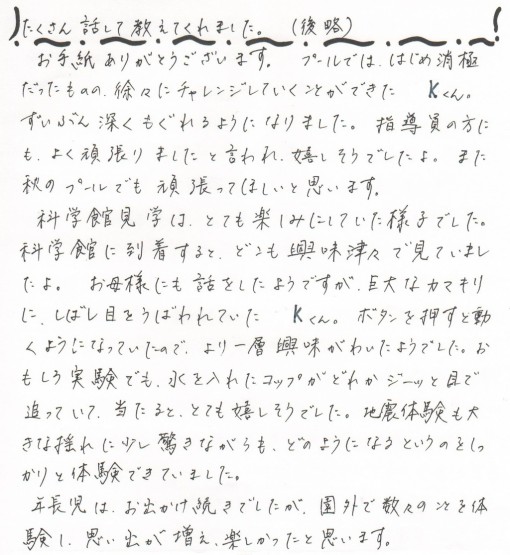 たくさん話して教えてくれました。（後略）
お手紙ありがとうございます。プールでは、はじめ消極
だったものの、徐々にチャレンジしていくことができた Kくん。
ずいぶん深くもぐれるようになりました。指導員の方に
も、よく頑張りましたと言われ、嬉しそうでしたよ。また
秋のプールでも頑張ってほしいと思います。
科学館見学は、とても楽しみにしていた様子でした。
科学館に到着すると、どこも興味津々で見ていまし
たよ。お母様にも話をしたようですが、巨大なカマキリ
に、しばし目をうばわれていた Kくん。ボタンを押すと動
くようになっていたので、より一層興味がわいたようでした。お
もしろ実験でも、水を入れたコップがどれかジーッと目で
追っていて、当たると、とても嬉しそうでした。地震体験も大
きな揺れに少し驚きながらも、どのようになるというのをしっ
かりと体験できていました。
年長児は、お出かけ続きでしたが、園外で数々のことを体
験し、思い出が増え、楽しかったと思います。